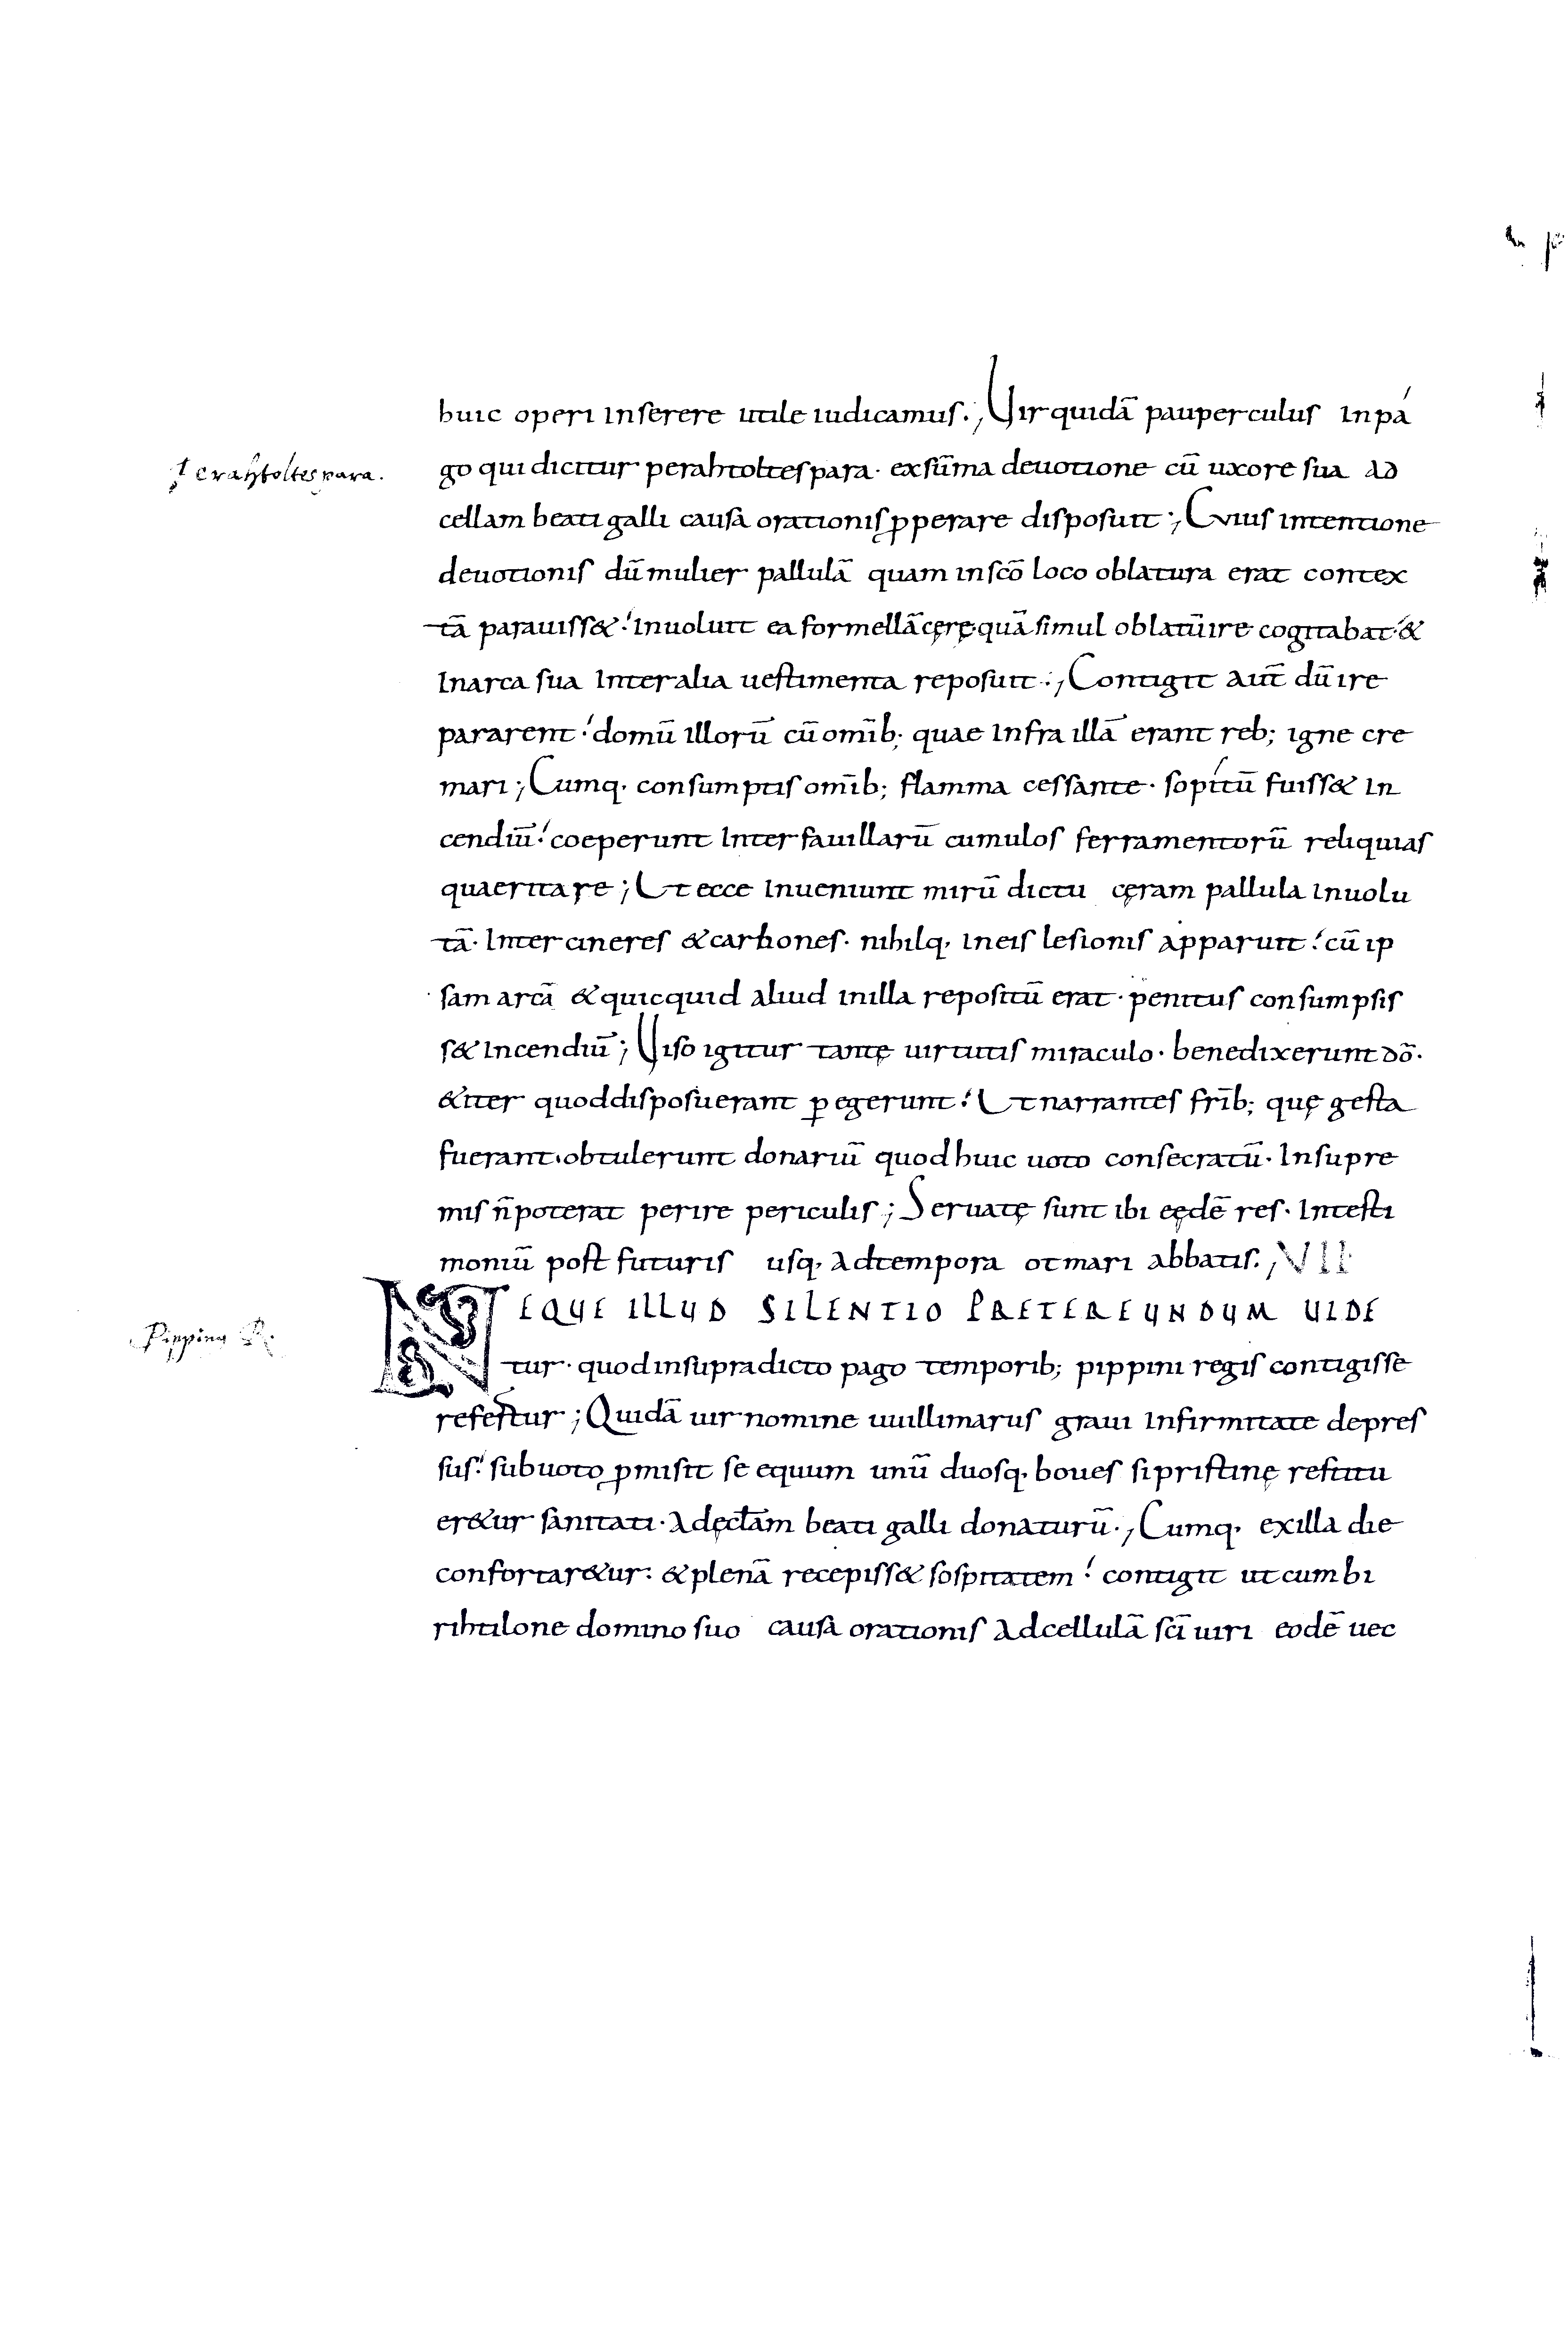 huic operi inserere utile iudicamus·; Uir quidā pauperculus in pá
Perahtoltespara.
go qui dicitur perahtoltespara· ex sūma deuotione cū uxore sua ad
cellam beati galli causa orationis ꝓperare disposuit·; Cuius intentione
deuotionis dū mulier pallulā quam in sc̄o loco oblatura erat contex
tā parauiss&·' inuoluit ea formellā cęrę· quā simul oblatū ire cogitabat·' &
in arca sua inter alia uestimenta reposuit·; Contigit aut̄ dū ire
pararent·' domū illorū cū om̄ib; quae infra illā erant reb; igne cre
mari; Cumq· consumptis om̄ib; flamma cessante· sopítū fuiss& in
cendiū·' coeperunt inter fauillarū cumulos ferramentorū reliquias
quaeritare; Et ecce inueniunt mirū dictu cęram pallula inuolu
tā· inter cineres & carbones· nihilq· in eis lesionis apparuit·' cū ip
sam arcā & quicquid aliud in illa repositū erat· penitus consumpsis
s& incendiū; Uiso igitur tantę uirtutis miraculo· benedixerunt dō·
& iter quod disposuerant ꝑegerunt·' Et narrantes fr̄ib; quę gesta
fuerant· obtulerunt donariū quod huic uoto consecratū· in supre
mis n̄ poterat perire periculis; Seruatę sunt ibi eędē res· in testi
moniū post futuris usq· ad tempora otmari abbatis·; VII·
NEQUE ILLUD SILENTIO PRETEREUNDUM UIDE
Pippinꝰ R.
tur· quod in supradicto pago temporib; pippini regis contigisse
refertur; Quidā uir nomine uuillimarus graui infirmitate depres
sus·' sub uoto ꝓmisit se equum unū duosq· boues si pristinę restitu
er&ur sanitati· ad ęcl̄am beati galli donaturū·; Cumq· ex illa die
confortar&ur· & plenā recepiss& sospitatem·' contigit ut cum bi
rihtilone domino suo causa orationis ad cellulā sc̄i uiri eodē uec